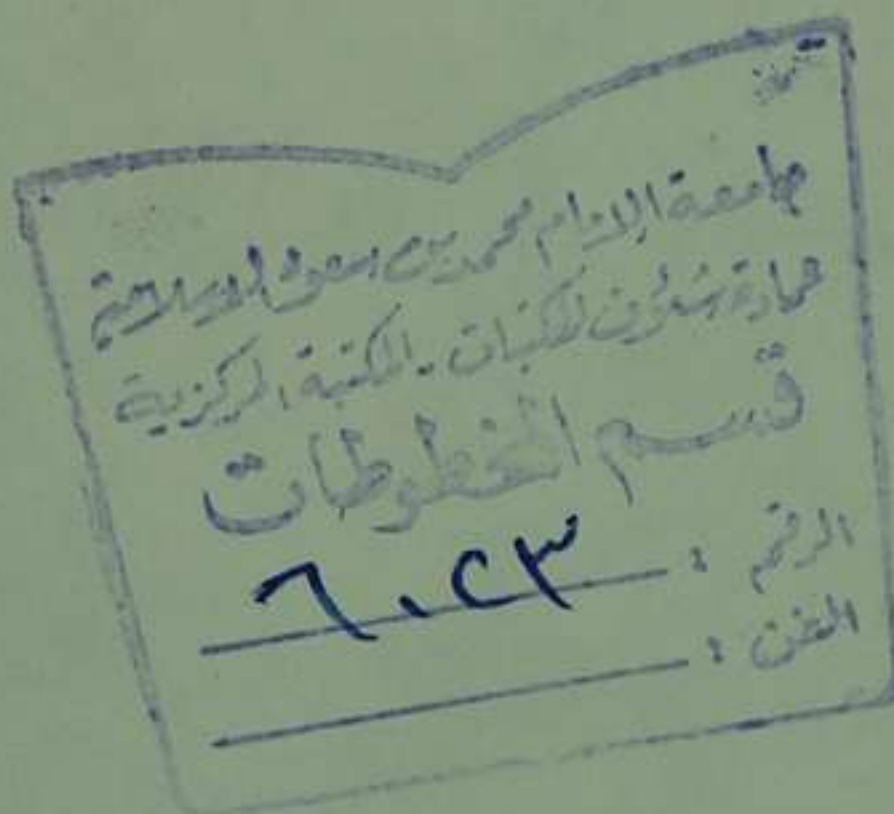 جامعة الإمام محمد بن سعود الإسلامية
عمادة شؤون المكتبات - المكتبة المركزية
قسم المخطوطات
الرقم : ٦٠٢٣
الفن :